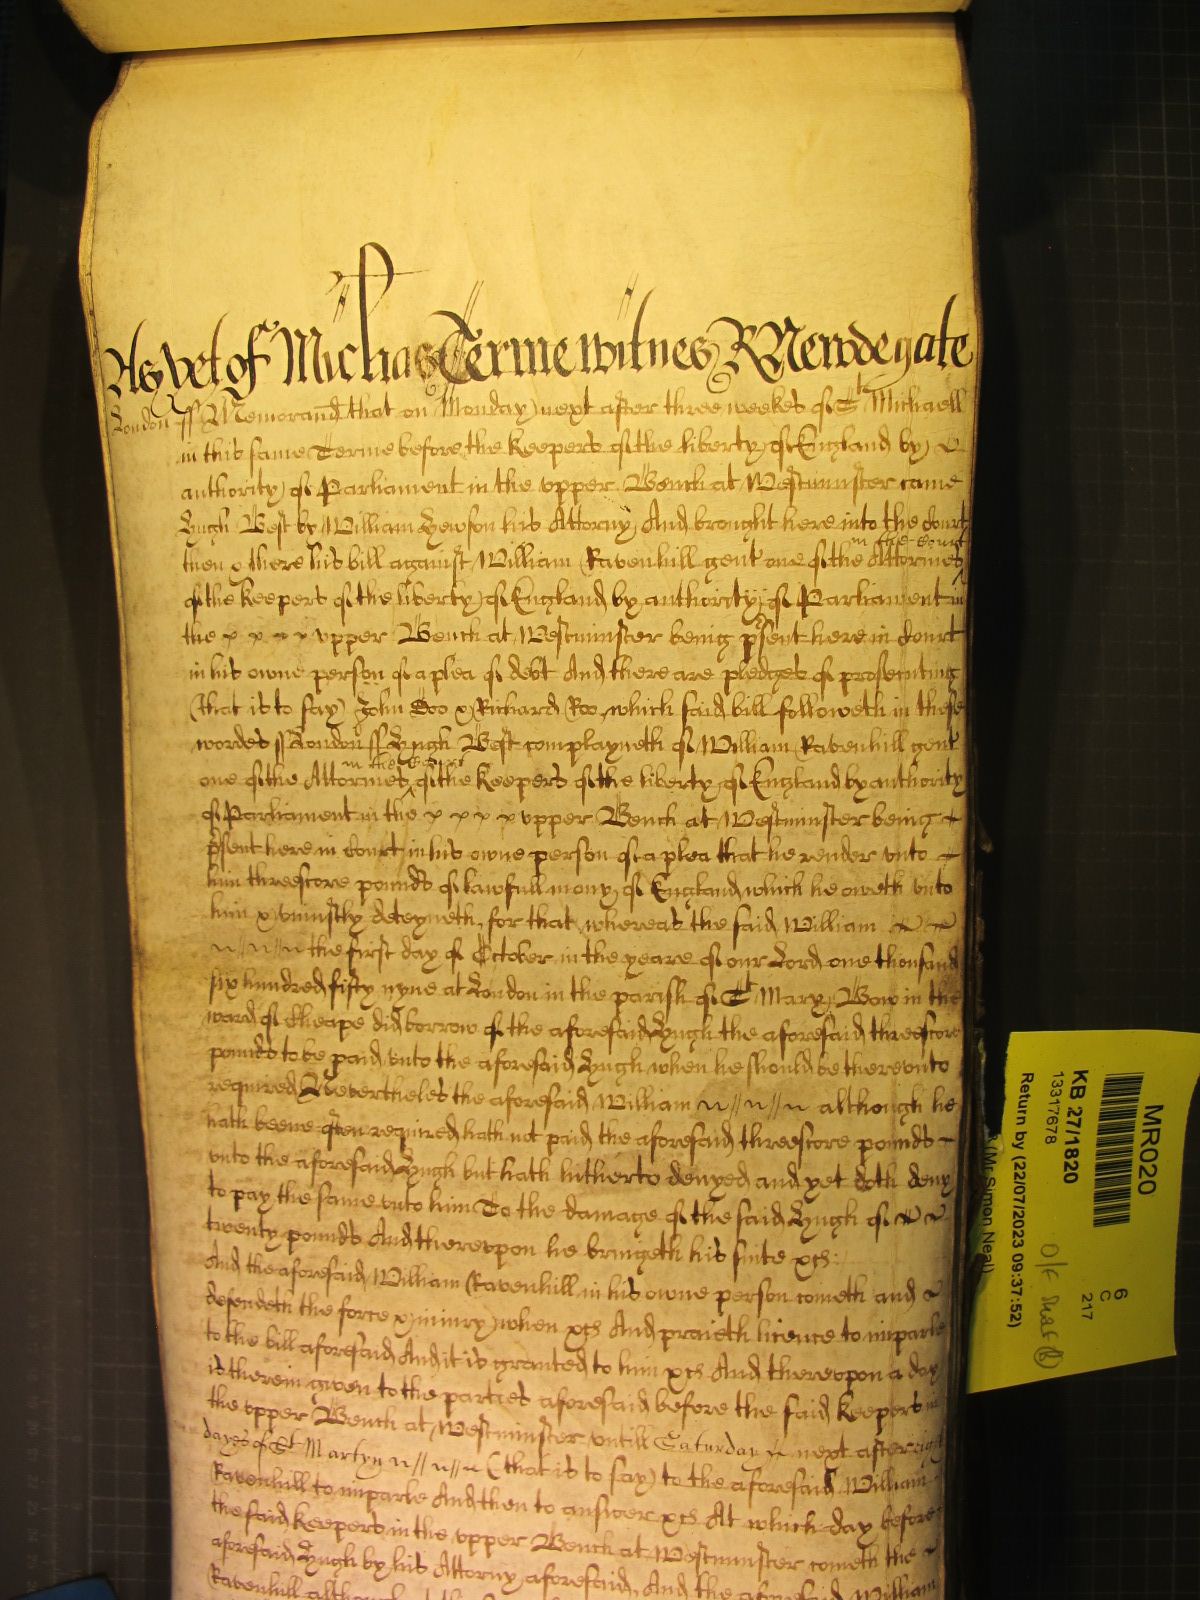 As yet of Michas Terme witnes R Newdegate
London ss Memorand that on Monday next after three weekes of St Michaell
in this same Terme before the Keepers of the liberty of England by
authority of Parliament in the vpper Bench at Westminster came
Hugh West by William Hewson his Attorny And brought here into the Court
in the Court
then & there his bill against William Ravenhill gent one of the Attornies
of the Keepers of the liberty of England by authority of Parliament in
the vpper Bench at Westminster being psent here in Court
in his owne person of a plea of debt And there are pledges of prosecuting
(that is to say) John Doo & Richard Roo, which said bill followeth in these
wordes ss London ss Hugh West complayneth of William Ravenhill gent
in the Court
one of the Attornies of the Keepers of the liberty of England by authority
of Parliament in the vpper Bench at Westminster being
psent here in Court in his owne person of a plea that he render vnto
him threescore pounds of lawfull mony of England which he oweth vnto
him & vniustly deteyneth, for that whereas the said William
the first day of October in the yeare of our Lord one thousand
six hundred fifty nyne at London in the parish of St Mary Bow in the
ward of Cheape did borrow of the aforesaid Hugh the aforesaid threescore
pounds to be paid vnto the aforesaid Hugh when he should be therevnto
required Neverthelés the aforesaid William although he
hath beene often required hath not paid the aforesaid threescore pounds
vnto the aforesaid Hugh but hath hitherto denyed and yet doth deny
to pay the same vnto him To the damage of the said Hugh of
twenty pounds And therevpon he bringeth his suite &c:
And the aforesaid William Ravenhill in his owne person cometh and
defendeth the force & iniury when &c And praieth licence to imparle
to the bill aforesaid And it is granted to him &c And therevpon a day
is therein given to the parties aforesaid before the said Keepers in
the vpper Bench at Westminster vntill Saturday next after eight
dayes of St Martyn (that is to say) to the aforesaid William
Ravenhill to imparle And then to answer &c At which day before
the said Keepers in the vpper Bench at Westminster cometh the
aforesaid Hugh by his Attorny aforesaid, And the aforesaid William
Ravenhill although
MR020
6
C
217
KB 27/1820
13317678
Return by (22/07/2023 09:37:52)
(Mr Simon Neal)